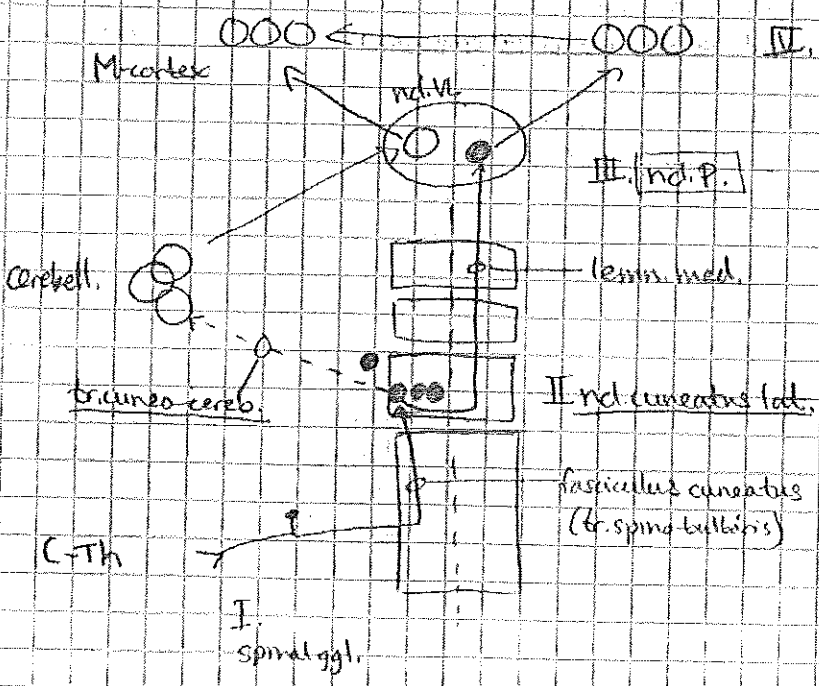 IV.
M-cortex
ncl. VL
III. ncl. P.
cerebell.
lemn. med.
tr. cuneo-cereb.
II ncl cuneatus lat.
fasciculus cuneatus
(tr. spino-bulbaris)
C-Th
I.
spinal ggl.